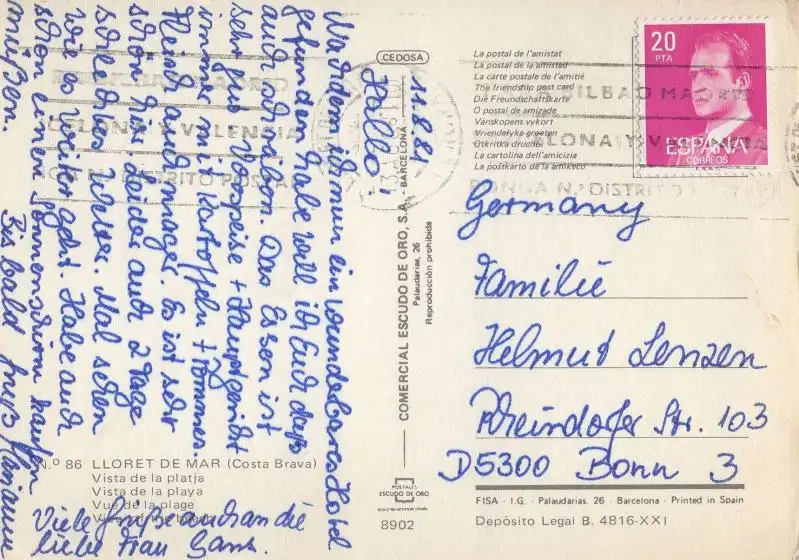 11.8.81
Hallo!
Nachdem ich nun ein wunderbares Hotel
gefunden habe will ich Euch
auch schreiben. Das Essen ist
sehr gut. Vorspeise + Hauptgericht
immer mit Kartoffeln + Pommes.
Fleisch auch mager. Es ist sehr
schön hier. Leider auch 2 Tage
schlechtes Wetter. Mal sehen
wie es weiter geht. Habe auch
schon einen Sonnenschirm kaufen
müssen.
Bis bald Eure Marianne
Viele Grüße auch an die
liebe Frau Gans.
N.º 86 LLORET DE MAR (Costa Brava)
Vista de la platja
Vista de la playa
Vue de la plage
View of the beach
CEDOSA
COMERCIAL ESCUDO DE ORO, S.A. - BARCELONA
Palaudarias, 26
Reproducción prohibida
POSTALES
ESCUDO DE ORO
8902
La postal de l'amistat
La postal de la amistad
La carte postale de l'amitié
The friendship post card
Die Freundschaftskarte
O postal de amizade
Vänskapens vykort
Vriendelyke groeten
Otkritka druchbi
La cartolina dell'amicizia
La postkarto de la amikeco
20
PTA
ESPAÑA
CORREOS
BILBAO MADRID
BARCELONA Y VALENCIA
PONGA N.º DISTRITO POSTAL
Germany
Familie
Helmut Lenzen
Rheindorfer Str. 103
D5300 Bonn 3
FISA - I.G. - Palaudarias, 26 - Barcelona - Printed in Spain
Depósito Legal B. 4816-XXI